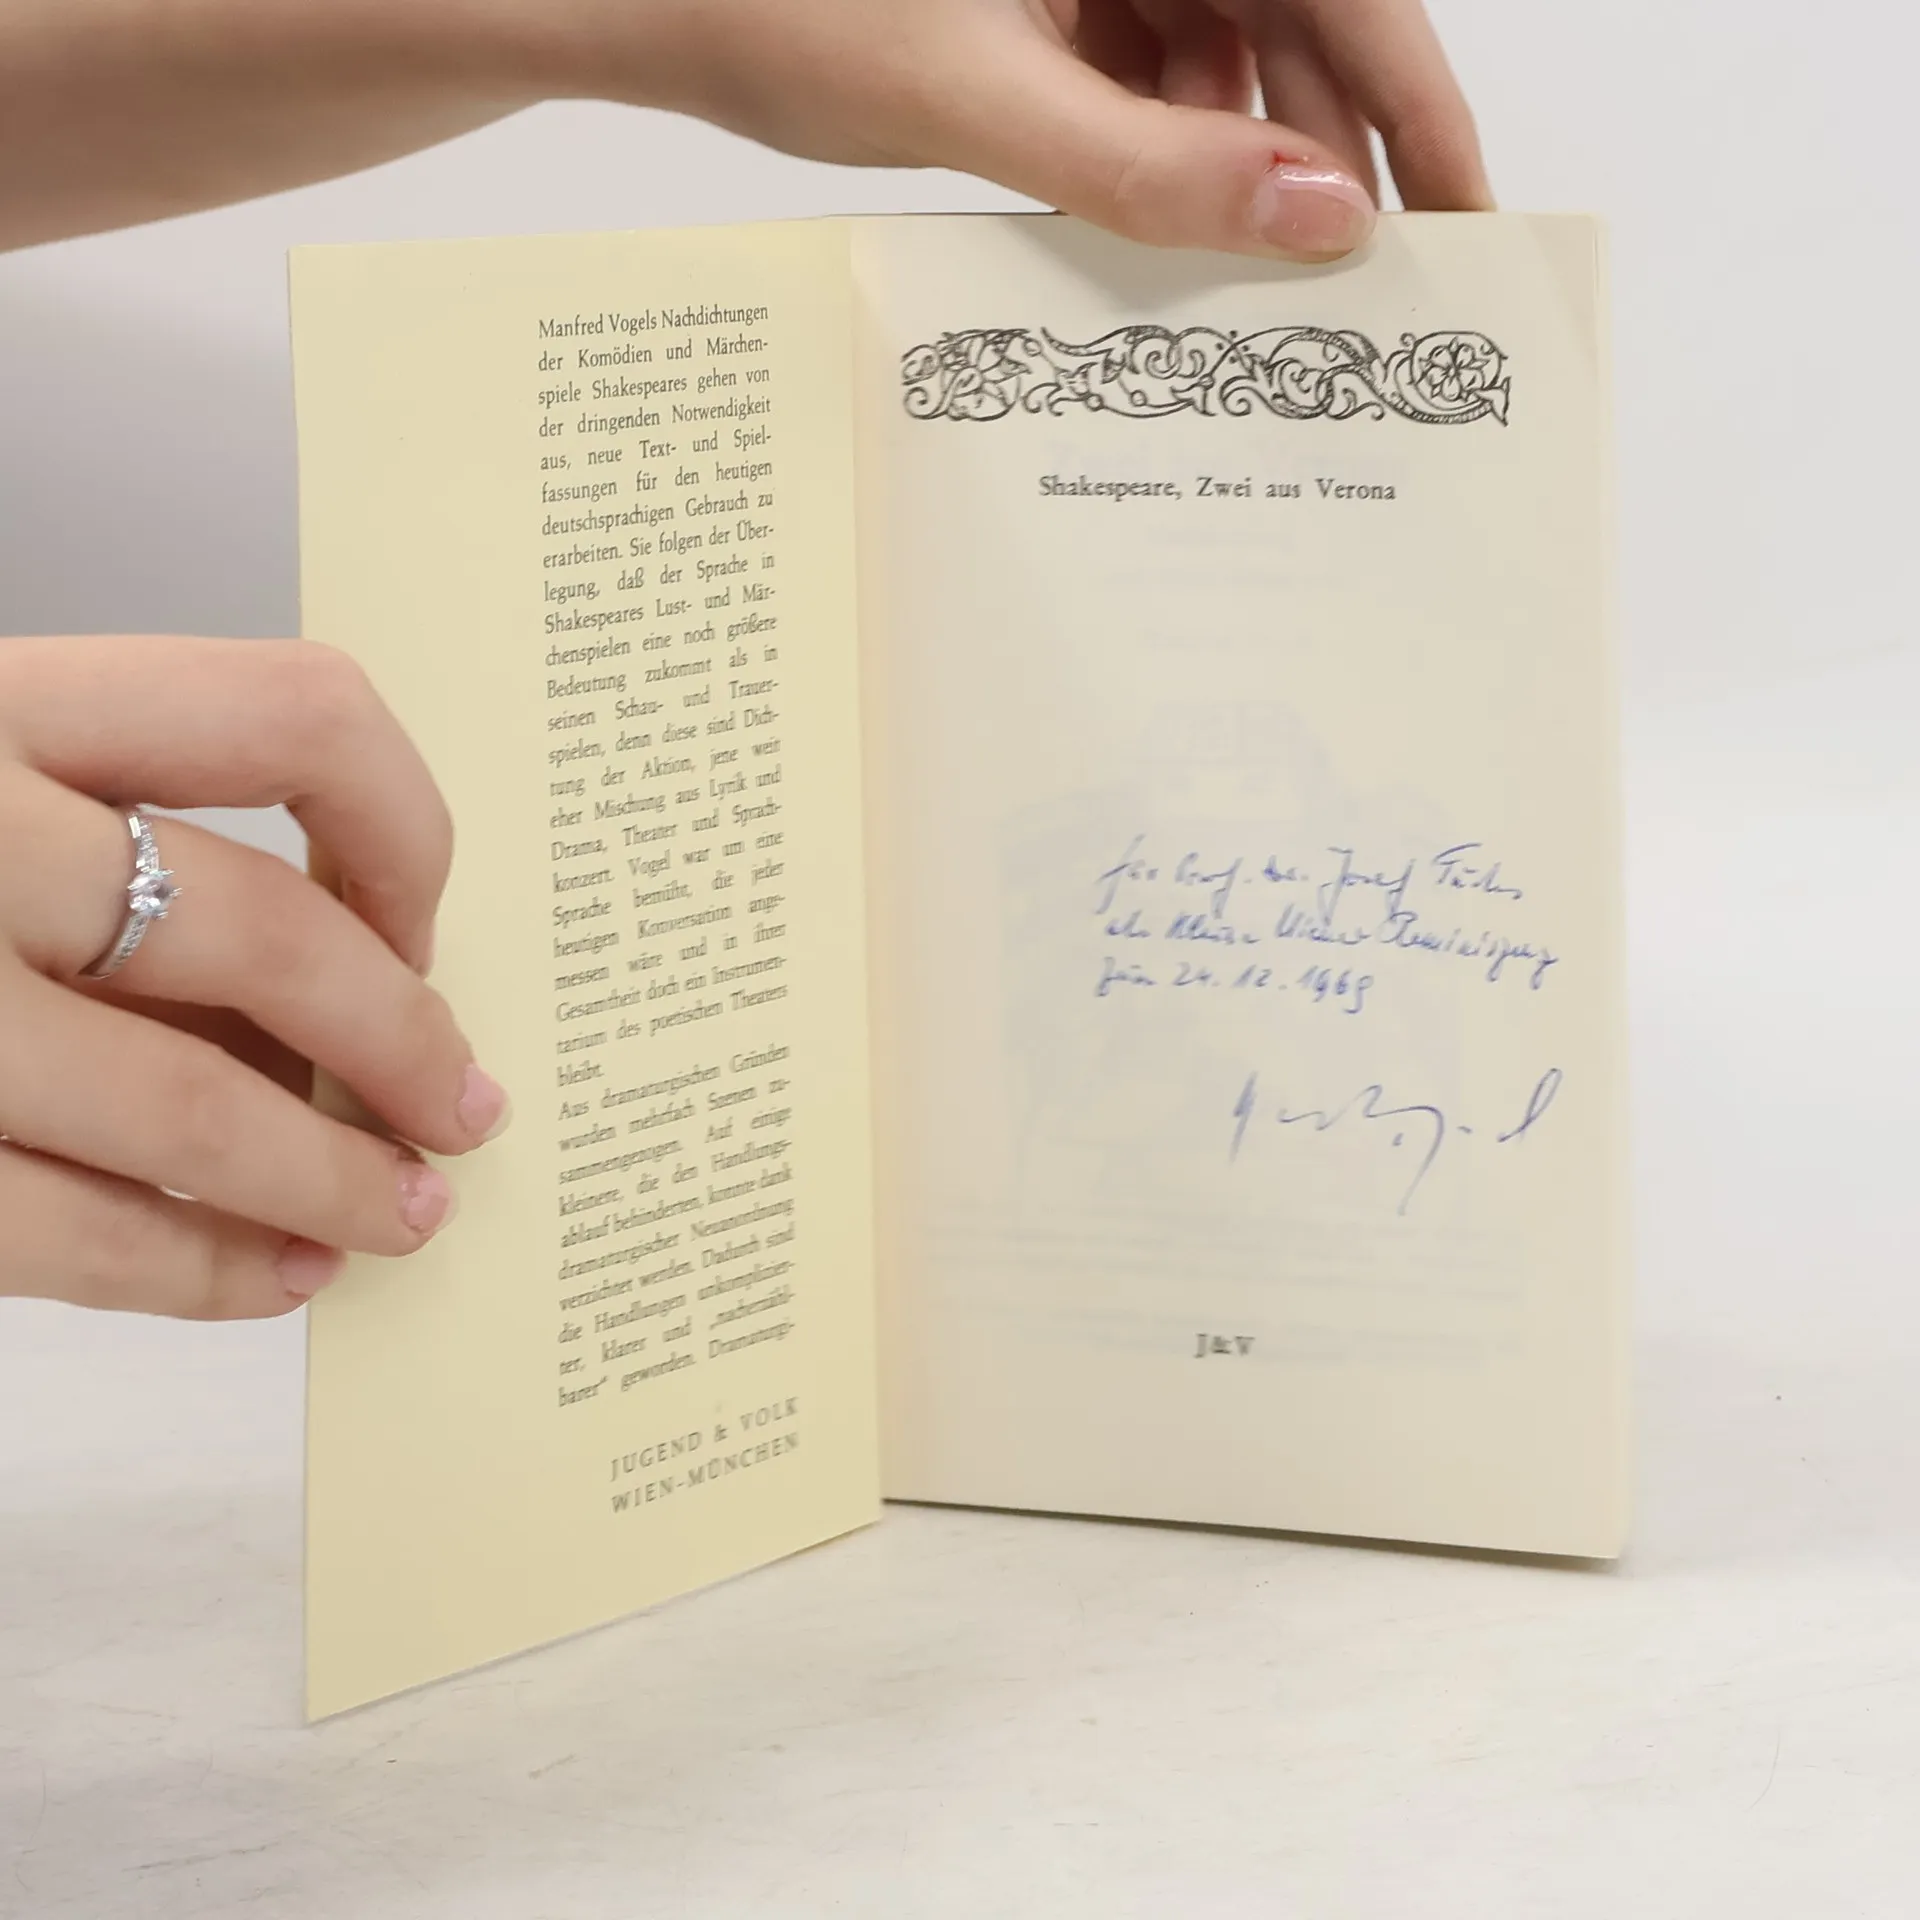 Manfred Vogels Nachdichtungen
der Komödien und Märchen-
spiele Shakespeares gehen von
der dringenden Notwendigkeit
aus, neue Text- und Spiel-
fassungen für den heutigen
deutschsprachigen Gebrauch zu
erarbeiten. Sie folgen der Über-
legung, daß der Sprache in
Shakespeares Lust- und Mär-
chenspielen eine noch größere
Bedeutung zukommt als in
seinen Schau- und Trauer-
spielen, denn diese sind Dich-
tung der Aktion, jene weit
eher Mischung aus Lyrik und
Drama, Theater und Sprach-
konzert. Vogel war um eine
Sprache bemüht, die jeder
heutigen Konversation ange-
messen wäre und in ihrer
Gesamtheit doch ein Instrumen-
tarium des poetischen Theaters
bleibt.
Aus dramaturgischen Gründen
wurden mehrfach Szenen zu-
sammengezogen. Auf einige
kleinere, die den Handlungs-
ablauf behinderten, konnte dank
dramaturgischer Neuanordnung
verzichtet werden. Dadurch sind
die Handlungen unkomplizier-
ter, klarer und „nacherzähl-
barer“ geworden. Dramaturgi-
JUGEND & VOLK
WIEN-MÜNCHEN
Shakespeare, Zwei aus Verona
für Prof. Dr. Josef
als kleine Wiener
zum 24.12.1969
J&V